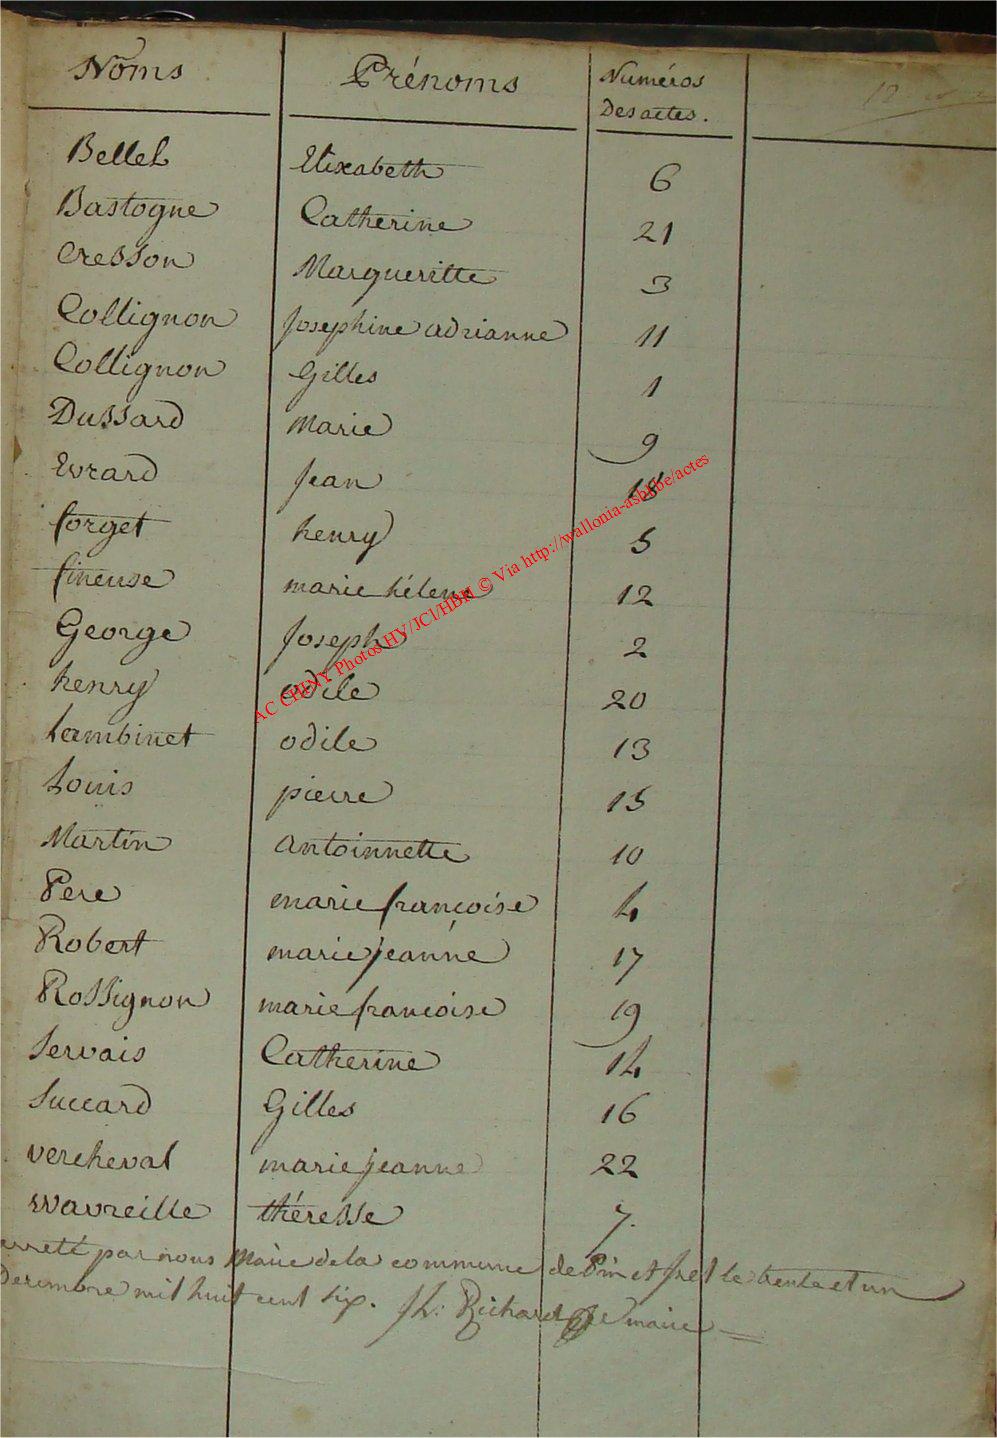 Noms Prénoms Numéros
Des actes.
Bellet Elisabeth 6
Bastogne Catherine 21
Cresson Margueritte 3
Collignon Josephine adrianne 11
Collignon Gilles 1
Dussard Marie 9
Evrard Jean 18
forget henry 5
fineuse marie hélene 12
George Joseph 2
henry odile 20
Lambinet odile 13
Louis pierre 15
Martin antoinnette 10
Pere marie françoise 4
Robert marie jeanne 17
Rossignon marie francoise 19
Servais Catherine 14
Succard Gilles 16
vercheval marie jeanne 22
Wavreille théresse 7.
arreté par nous Maire de la commune de Pin et le trente et un
Decembre mil huit cent six. Richard maire
AC CHINY Photos HV/JCl/HBH © Via http://wallonia-asbl.be/actes